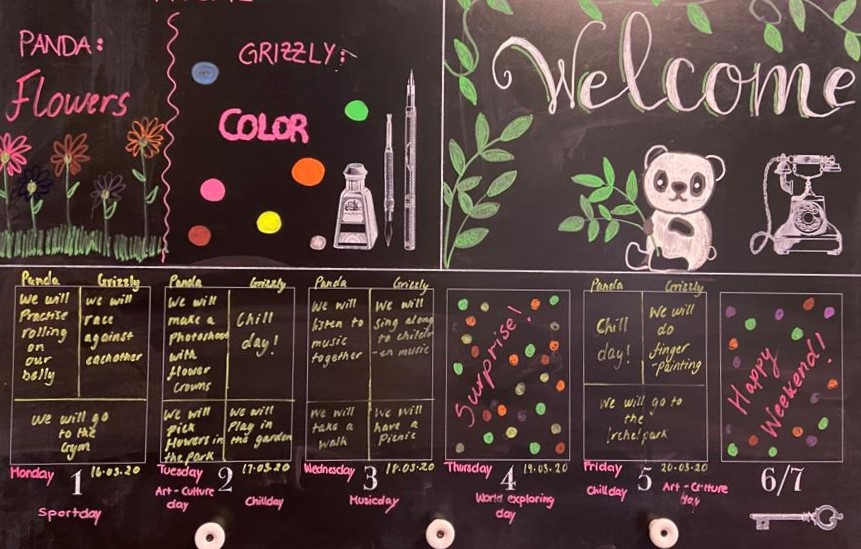 PANDA:
Flowers
GRIZZLY:
COLOR
Welcome
Panda
Grizzly
We will
Practise
rolling
on
our
belly
we will
race
against
eachother
we will go
to the
Gym
Monday
1
16.03.20
Sportday
Panda
Grizzly
We will
make a
photoshoot
with
flower
crowns
Chill
day!
We will
pick
flowers in
the park
We will
Play in
the garden
Tuesday
2
17.03.20
Art-Culture
day
Chillday
Panda
Grizzly
We will
listen to
music
together
We will
sing along
to childr
-en music
We will
take a
walk
We will
have a
Picnic
Wednesday
3
18.03.20
Musicday
Surprise!
Thursday
4
19.03.20
World exploring
day
Panda
Grizzly
Chill
day!
We will
do
finger
-painting
We will go to
the
Irchelpark
Friday
5
20.03.20
Chillday
Art-Culture
day
Happy
Weekend!
6/7